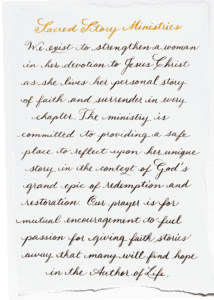 Sacred Story Ministries
We exist to strengthen a woman
in her devotion to Jesus Christ
as she lives her personal story
of faith and surrender in every
chapter. The ministry is
committed to providing a safe
place to reflect upon her unique
story in the context of God's
grand epic of redemption and
restoration. Our prayer is for
mutual encouragement to fuel
passion for giving faith stories
away that many will find hope
in the Author of Life.